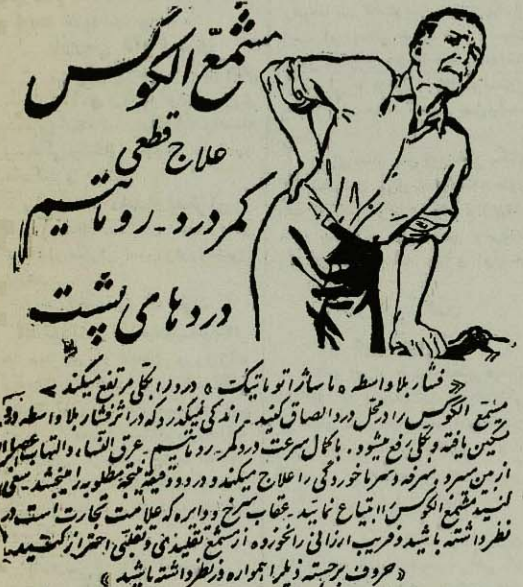 مشمع الکوکس
علاج قطعی
کمر درد ـ روماتیسم
درد های پشت
« فشار بلاواسطه » « ماساژ اتوماتیک » درد را بکلی مرتفع میکند »
مشمع الکوکس را در محل درد الصاق کنید . اندکی نمیگذرد که در اثر فشار بلاواسطه درد
تسکین یافته و بکلی رفع میشود . با کمال سرعت درد کمر ـ روماتیسم ـ عرق النساء ، والتهاب عصب را
از بین میبرد و سرفه و سرما خوردگی را علاج میکند و در دو دقیقه نتیجه مطلوبه را میبخشد سعی
کنید مشمع الکوکس را ابتیاع نمائید . عقاب سرخ و دایره که علامت تجارت است در
نظر داشته باشید و فریب ارزانی را نخورده از مشمع تقلیدی و تقلبی احتراز کنید
« حروف برجسته ذیل را همواره در نظر داشته باشید »